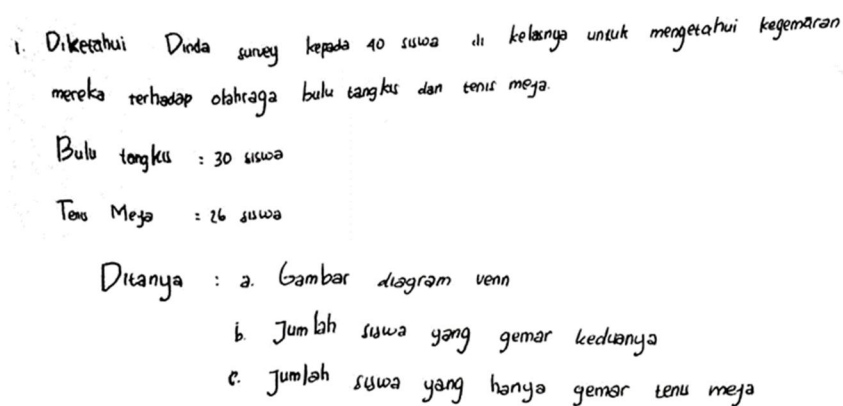 1. Diketahui Dinda survey kepada 40 siswa di kelasnya untuk mengetahui kegemaran
mereka terhadap olahraga bulu tangkis dan tenis meja.
Bulu tangkis : 30 siswa
Tenis Meja : 26 siswa
Ditanya : a. Gambar diagram venn
b. Jumlah siswa yang gemar keduanya
c. Jumlah siswa yang hanya gemar tenis meja